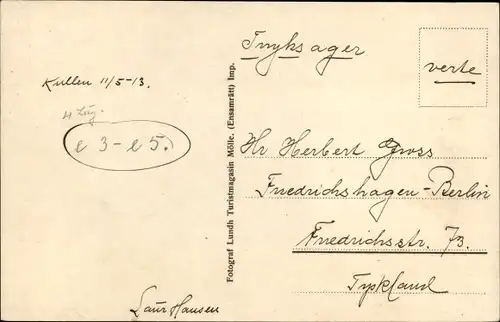 Tryksager
verte
Kullen 11/5-13.
e 3 - e 5.
Fotograf Lundh Turistmagasin Mölle. (Ensamrätt) Imp.
Hr Herbert Gross
Friedrichshagen-Berlin
Friedrichsstr. 73.
Tyskland
Laur Hansen